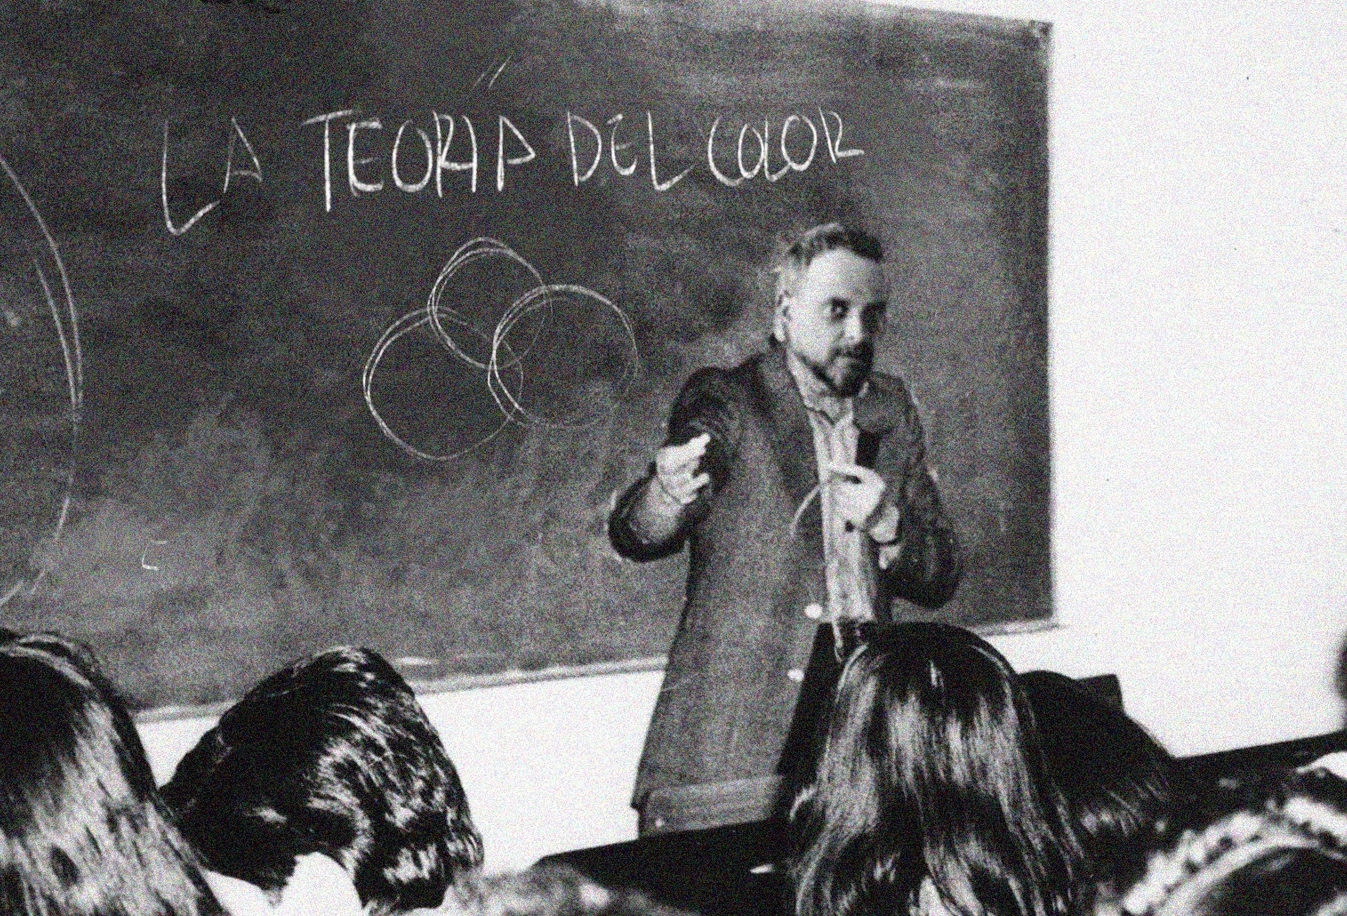 LA TEORIA DEL COLOR